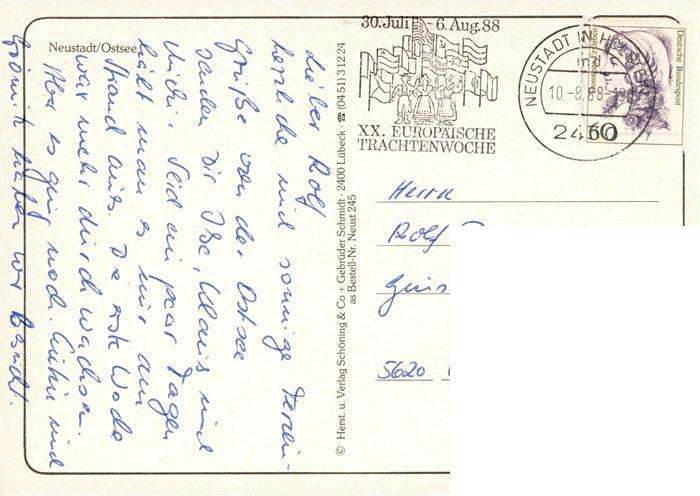 Neustadt/Ostsee
Lieber Rolf
herzliche und sonnige Ferien-
Grüße von der Ostsee
senden Dir Ilse, Klaus und
Seid ein paar Tagen
hält man es nur am
Strand aus. Die erste Woche
war mehr durchwachsen.
Aber es ging noch. Eutin und
Grömitz haben wir besucht.
© Herst. u. Verlag Schöning & Co + Gebrüder Schmidt · 2400 Lübeck · ☎ (0451) 31224
as Bestell-Nr. Neust 245
30. Juli - 6. Aug. 88
XX. EUROPÄISCHE
TRACHTENWOCHE
NEUSTADT IN HOLSTEIN
10.-8.88
2430
Deutsche Bundespost
60
Herrn
Rolf
5620